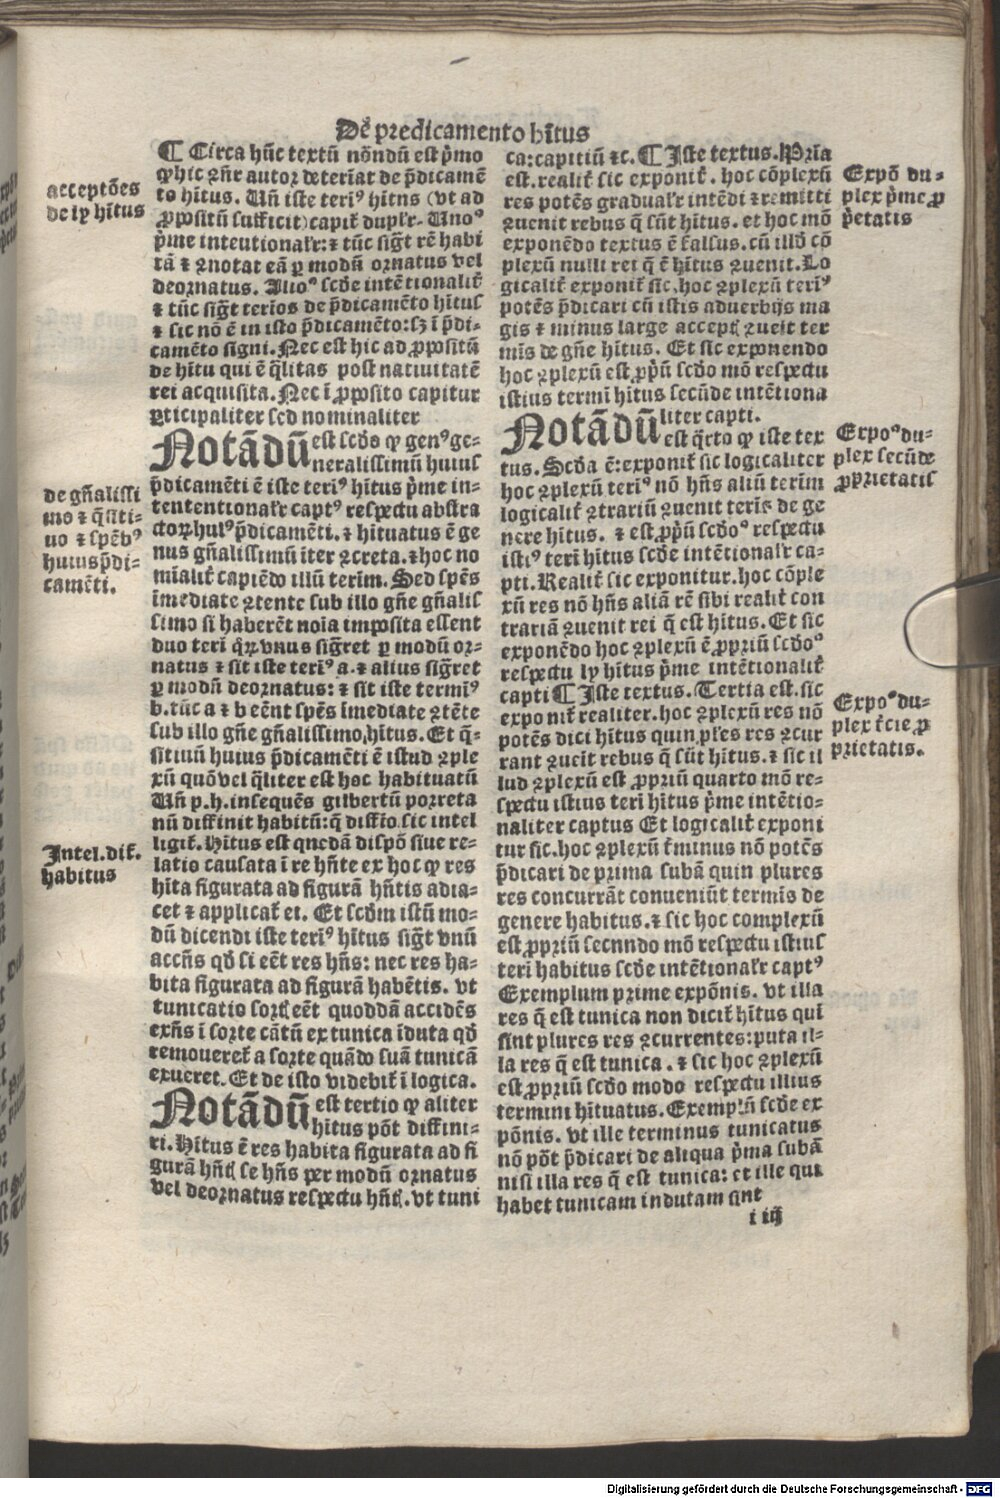 De predicamento hītus
acceptōes
de ly hītus
de gn̄alissi
mo ⁊ q̄siti-
uo ⁊ spēbꝰ
huius p̄di-
camēti.
Intel. dif̄.
habitus
¶ Circa hūc textū nōndū est p̄mo
ꝙ hic gn̄r autor determ̄at de p̄dicamē
to hītus. Un̄ iste terīꝰ hītus (vt ad
ꝓpositū sufficit) capit̄ duplr̄. Unoꝰ
p̄me intentionalr̄: ⁊ tūc siḡt rē habi
tā ⁊ ꝯnotat eā ꝑ modū ornatus vel
deornatus. Alioꝰ scd̄e intētionalit̄
⁊ tūc siḡt terīos de p̄dicamēto hītus
⁊ sic nō ē in isto p̄dicamēto: sꝫ ī p̄di-
camēto signi. Nec est hic ad ꝓpositū
de hītu qui ē q̄litas post natiuitatē
rei acquisita. Nec ī ꝓposito capitur
ꝑticipaliter sed nominaliter
Notādū est scd̄o ꝙ genꝰ ge-
neralissimū huius
p̄dicamēti ē iste terīꝰ hītus p̄me in-
tententionalr̄ captꝰ respectu abstra
ctoꝝ hulꝰ p̄dicamēti. ⁊ hituatus ē ge
nus gn̄alissimū iter ꝯcreta. ⁊ hoc no
mīalit̄ capiēdo illū terīm. Sed spēs
īmediate ꝯtente sub illo gn̄e gn̄alis
simo si haberēt noīa imposita essent
duo terī q̄ꝝ vnus siḡret ꝑ modū or-
natus ⁊ sit iste terīꝰ a. ⁊ alius siḡret
ꝑ modū deornatus: ⁊ sit iste termīꝰ
b. tūc a ⁊ b eēnt spēs īmediate ꝯtēte
sub illo gn̄e gn̄alissimo, hītus. Et q̄-
sitiuū huius p̄dicamēti ē istud ꝯple
xū quōvel q̄liter est hoc habituatū
Un̄ p. h. insequēs gilbertū porreta
nū diffinit habitū: q̄ diffīo. sic intel
ligit̄. Hītus est quedā dispō siue re-
latio causata ī re hn̄te ex hoc ꝙ res
hīta figurata ad figurā hn̄tis adia-
cet ⁊ applicat̄ ei. Et scd̄m istū mo-
dū dicendi iste terīꝰ hītus siḡt vnū
accn̄s qd̄ si eēt res hn̄s: nec res ha-
bita figurata ad figurā habētis. vt
tunicatio sort̄ eēt quoddā accidēs
exn̄s ī sorte cātū ex tunica īduta qd̄
remoueret̄ a sorte quādo suā tunicā
exueret. Et de isto videbit̄ ī logica.
Notādū est tertio ꝙ aliter
hītus pōt diffini-
ri. Hītus ē res habita figurata ad fi
gurā hn̄t̄ se hn̄s per modū ornatus
vel deornatus respectu hn̄t̄. vt tuni
ca: capitiū ⁊c. ¶ Iste textus. Prīa
est. realit̄ sic exponit̄. hoc cōplexū
res potēs gradualr̄ intēdi ⁊ remitti
ꝯuenit rebus q̄ sūt hītus. et hoc mō
exponēdo textus ē falsus. cū illd̄ cō
plexū nulli rei q̄ ē hītus ꝯuenit. Lo
gicalit̄ exponit̄ sic, hoc ꝯplexū terīꝰ
potēs p̄dicari cū istis aduerbijs ma
gis ⁊ minus large accept̄ ꝯueit ter
mīs de gn̄e hītus. Et sic exponendo
hoc ꝯplexū est ꝓpū scd̄o mō respectu
istius termī hītus secūde intētiona
liter capti.
Notādū est q̄rto ꝙ iste tex
tus. Scd̄a ē: exponit̄ sic logicaliter
hoc ꝯplexū terīꝰ nō hn̄s aliū terīm
logicalit̄ ꝯtrariū ꝯuenit terīs de ge
nere hītus. ⁊ est ꝓpū scd̄oꝰ respectu
istiꝰ terī hītus scd̄e intētionalr̄ ca-
pti. Realit̄ sic exponitur. hoc cōple
xū res nō hn̄s aliā rē sibi realit̄ con
trariā ꝯuenit rei q̄ est hītus. Et sic
exponēdo hoc ꝯplexū ē ꝓpriū scd̄oꝰ
respectu ly hītus p̄me intētionalit̄
capti ¶ Iste textus. Tertia est. sic
exponit̄ realiter. hoc ꝯplexū res nō
potēs dici hītus quin pl̄es res ꝯcur
rant ꝯueit rebus q̄ sūt hītus. ⁊ sic il
lud ꝯplexū est ꝓpriū quarto mō re-
spectu istius terī hītus p̄me intētio-
naliter captus Et logicalit̄ exponi
tur sic. hoc ꝯplexū t̄minus nō potēs
p̄dicari de prima subā quin plures
res concurrāt conueniūt termīs de
genere habitus. ⁊ sic hoc complexū
est ꝓpriū secnndo mō respectu istius
terī habitus scd̄e intētionalr̄ captꝰ
Exemplum prime expōnis. vt illa
res q̄ est tunica non dicit̄ hītus qui
sint plures res ꝯcurrentes: puta il-
la res q̄ est tunica. ⁊ sic hoc ꝯplexū
est ꝓpriū scd̄o modo respectu illius
termini hītuatus. Exemplū scd̄e ex
pōnis. vt ille terminus tunicatus
nō pōt p̄dicari de aliqua p̄ma subā
nisi illa res q̄ est tunica: et ille qui
habet tunicam indutam sint
i iij
Expō du-
plex p̄me ꝓ
p̄etatis
Expoꝰ du-
plex secūde
ꝓprietatis
Expoꝰ du-
plex t̄cie ꝓ
prietatis.
Digitalisierung gefördert durch die Deutsche Forschungsgemeinschaft - DFG